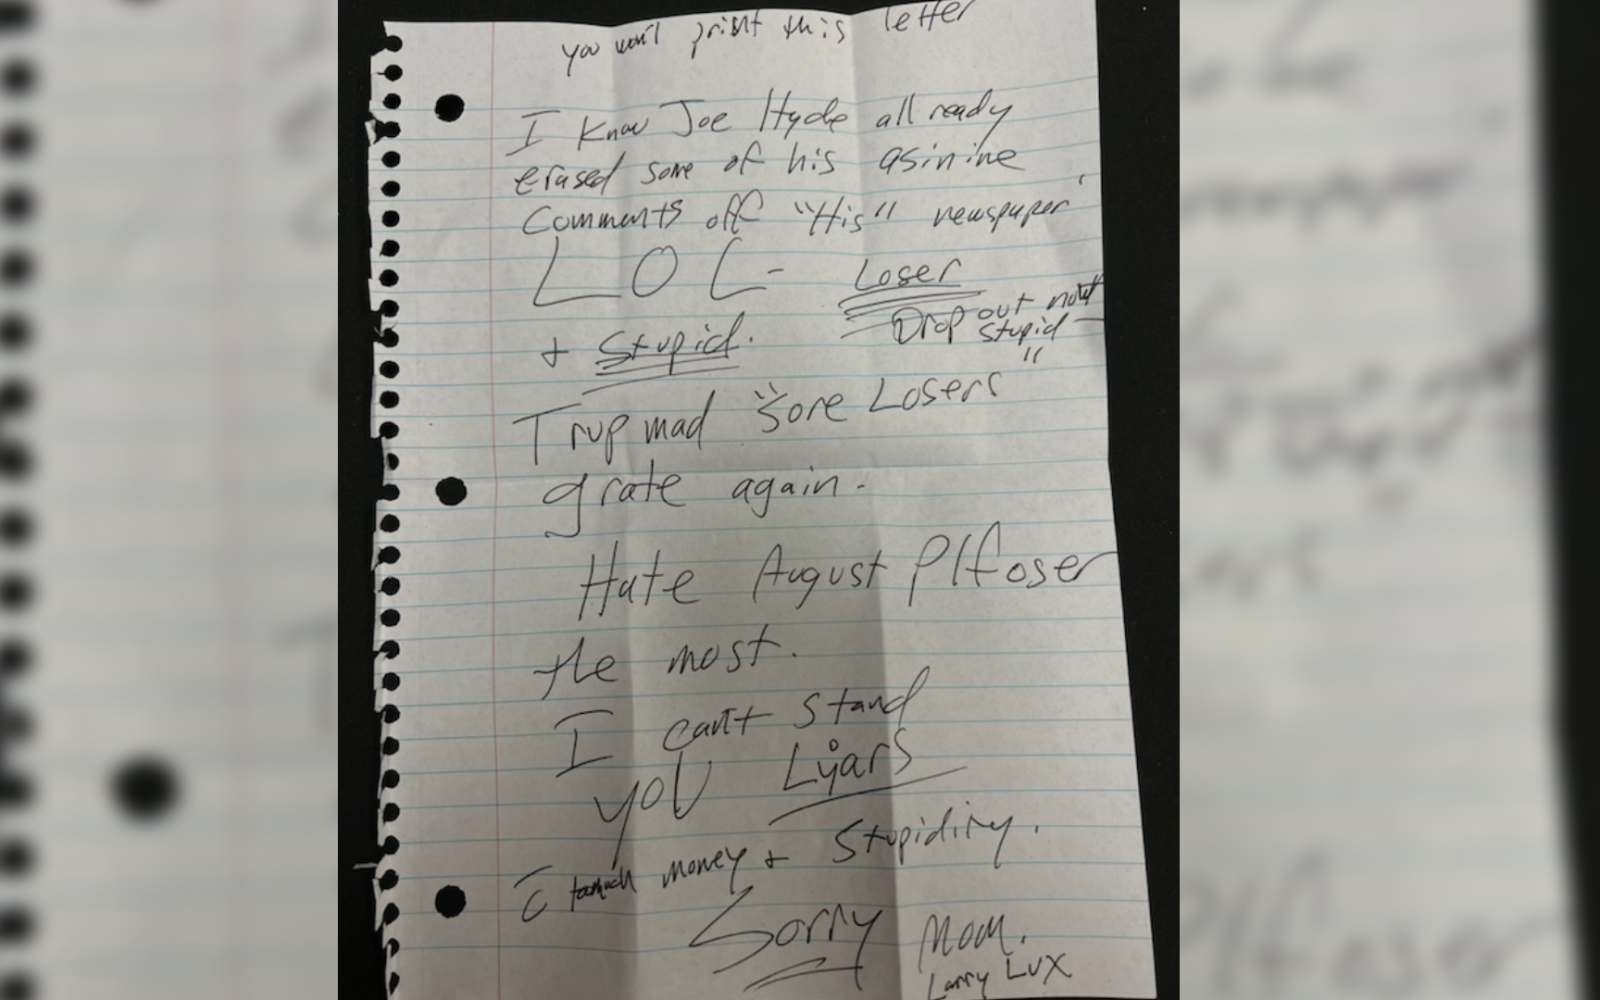 you won't print this letter
I know Joe Hyde all ready
erased some of his asinine
Comments off "His" newspaper
LOL- Loser
Drop out not
stupid
+ Stupid.
Trup mad "Sore Losers"
grate again.
Hate August Plfoser
the most.
I can't stand
you Lyars
money + Stupidity.
Sorry Mom.
Larry Lux